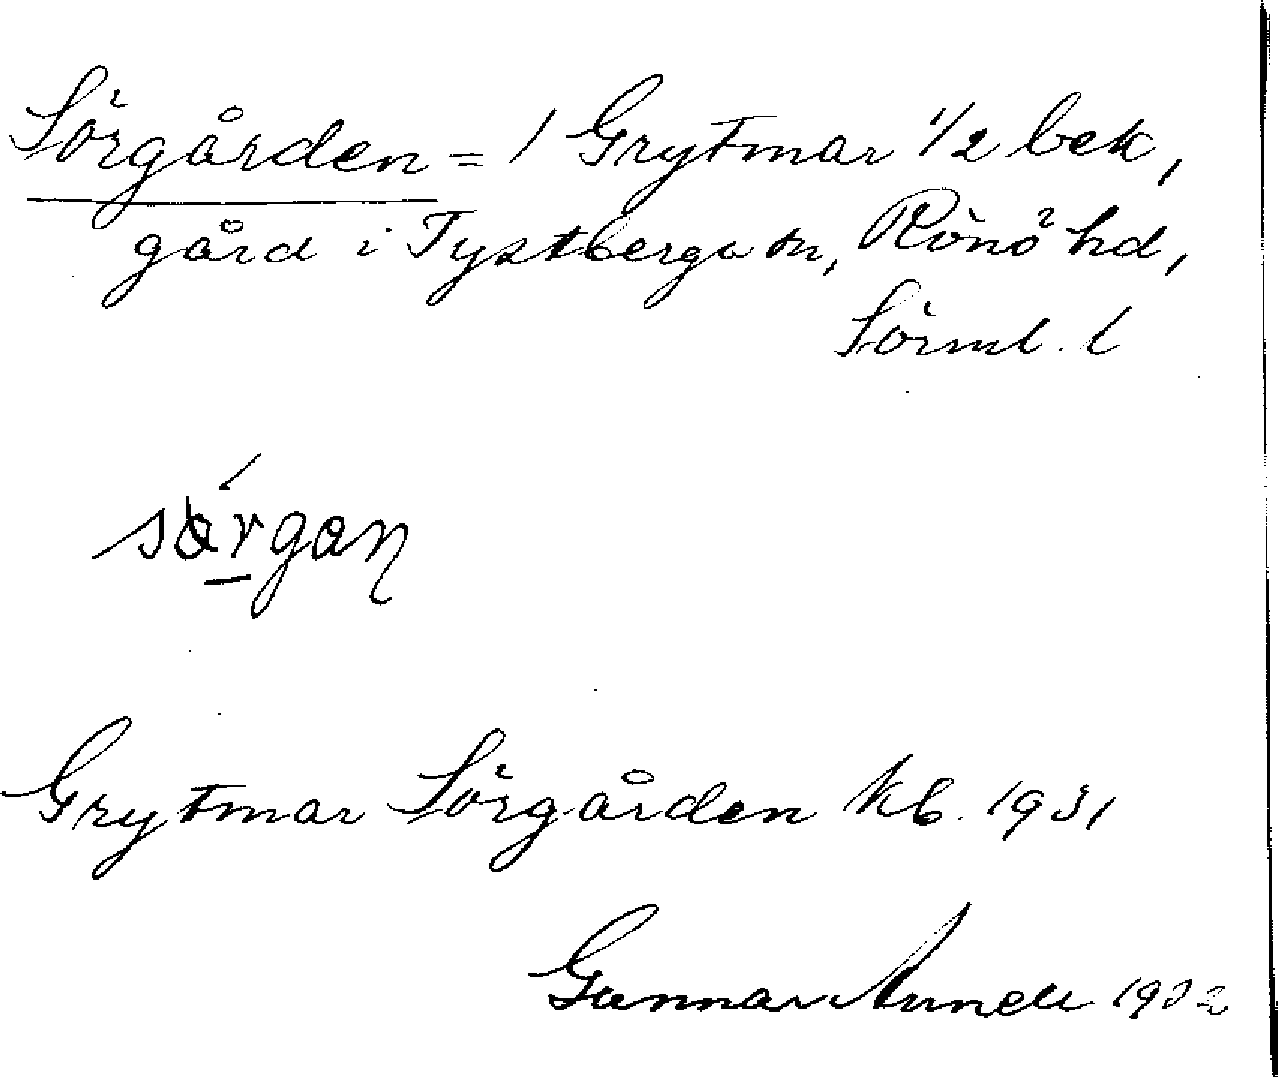 Sörgården = 1 Grytmar 1/2 bek,
gård i Tystberga sn, Rönö hd,
Sörml. l
Grytmar Sörgården kb. 1931
Gunnar 1932